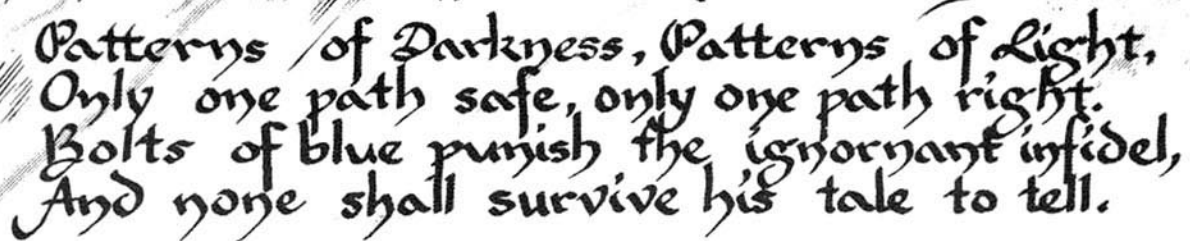 Patterns of Darkness, Patterns of Light,
Only one path safe, only one path right.
Bolts of blue punish the ignornant infidel,
And none shall survive his tale to tell.